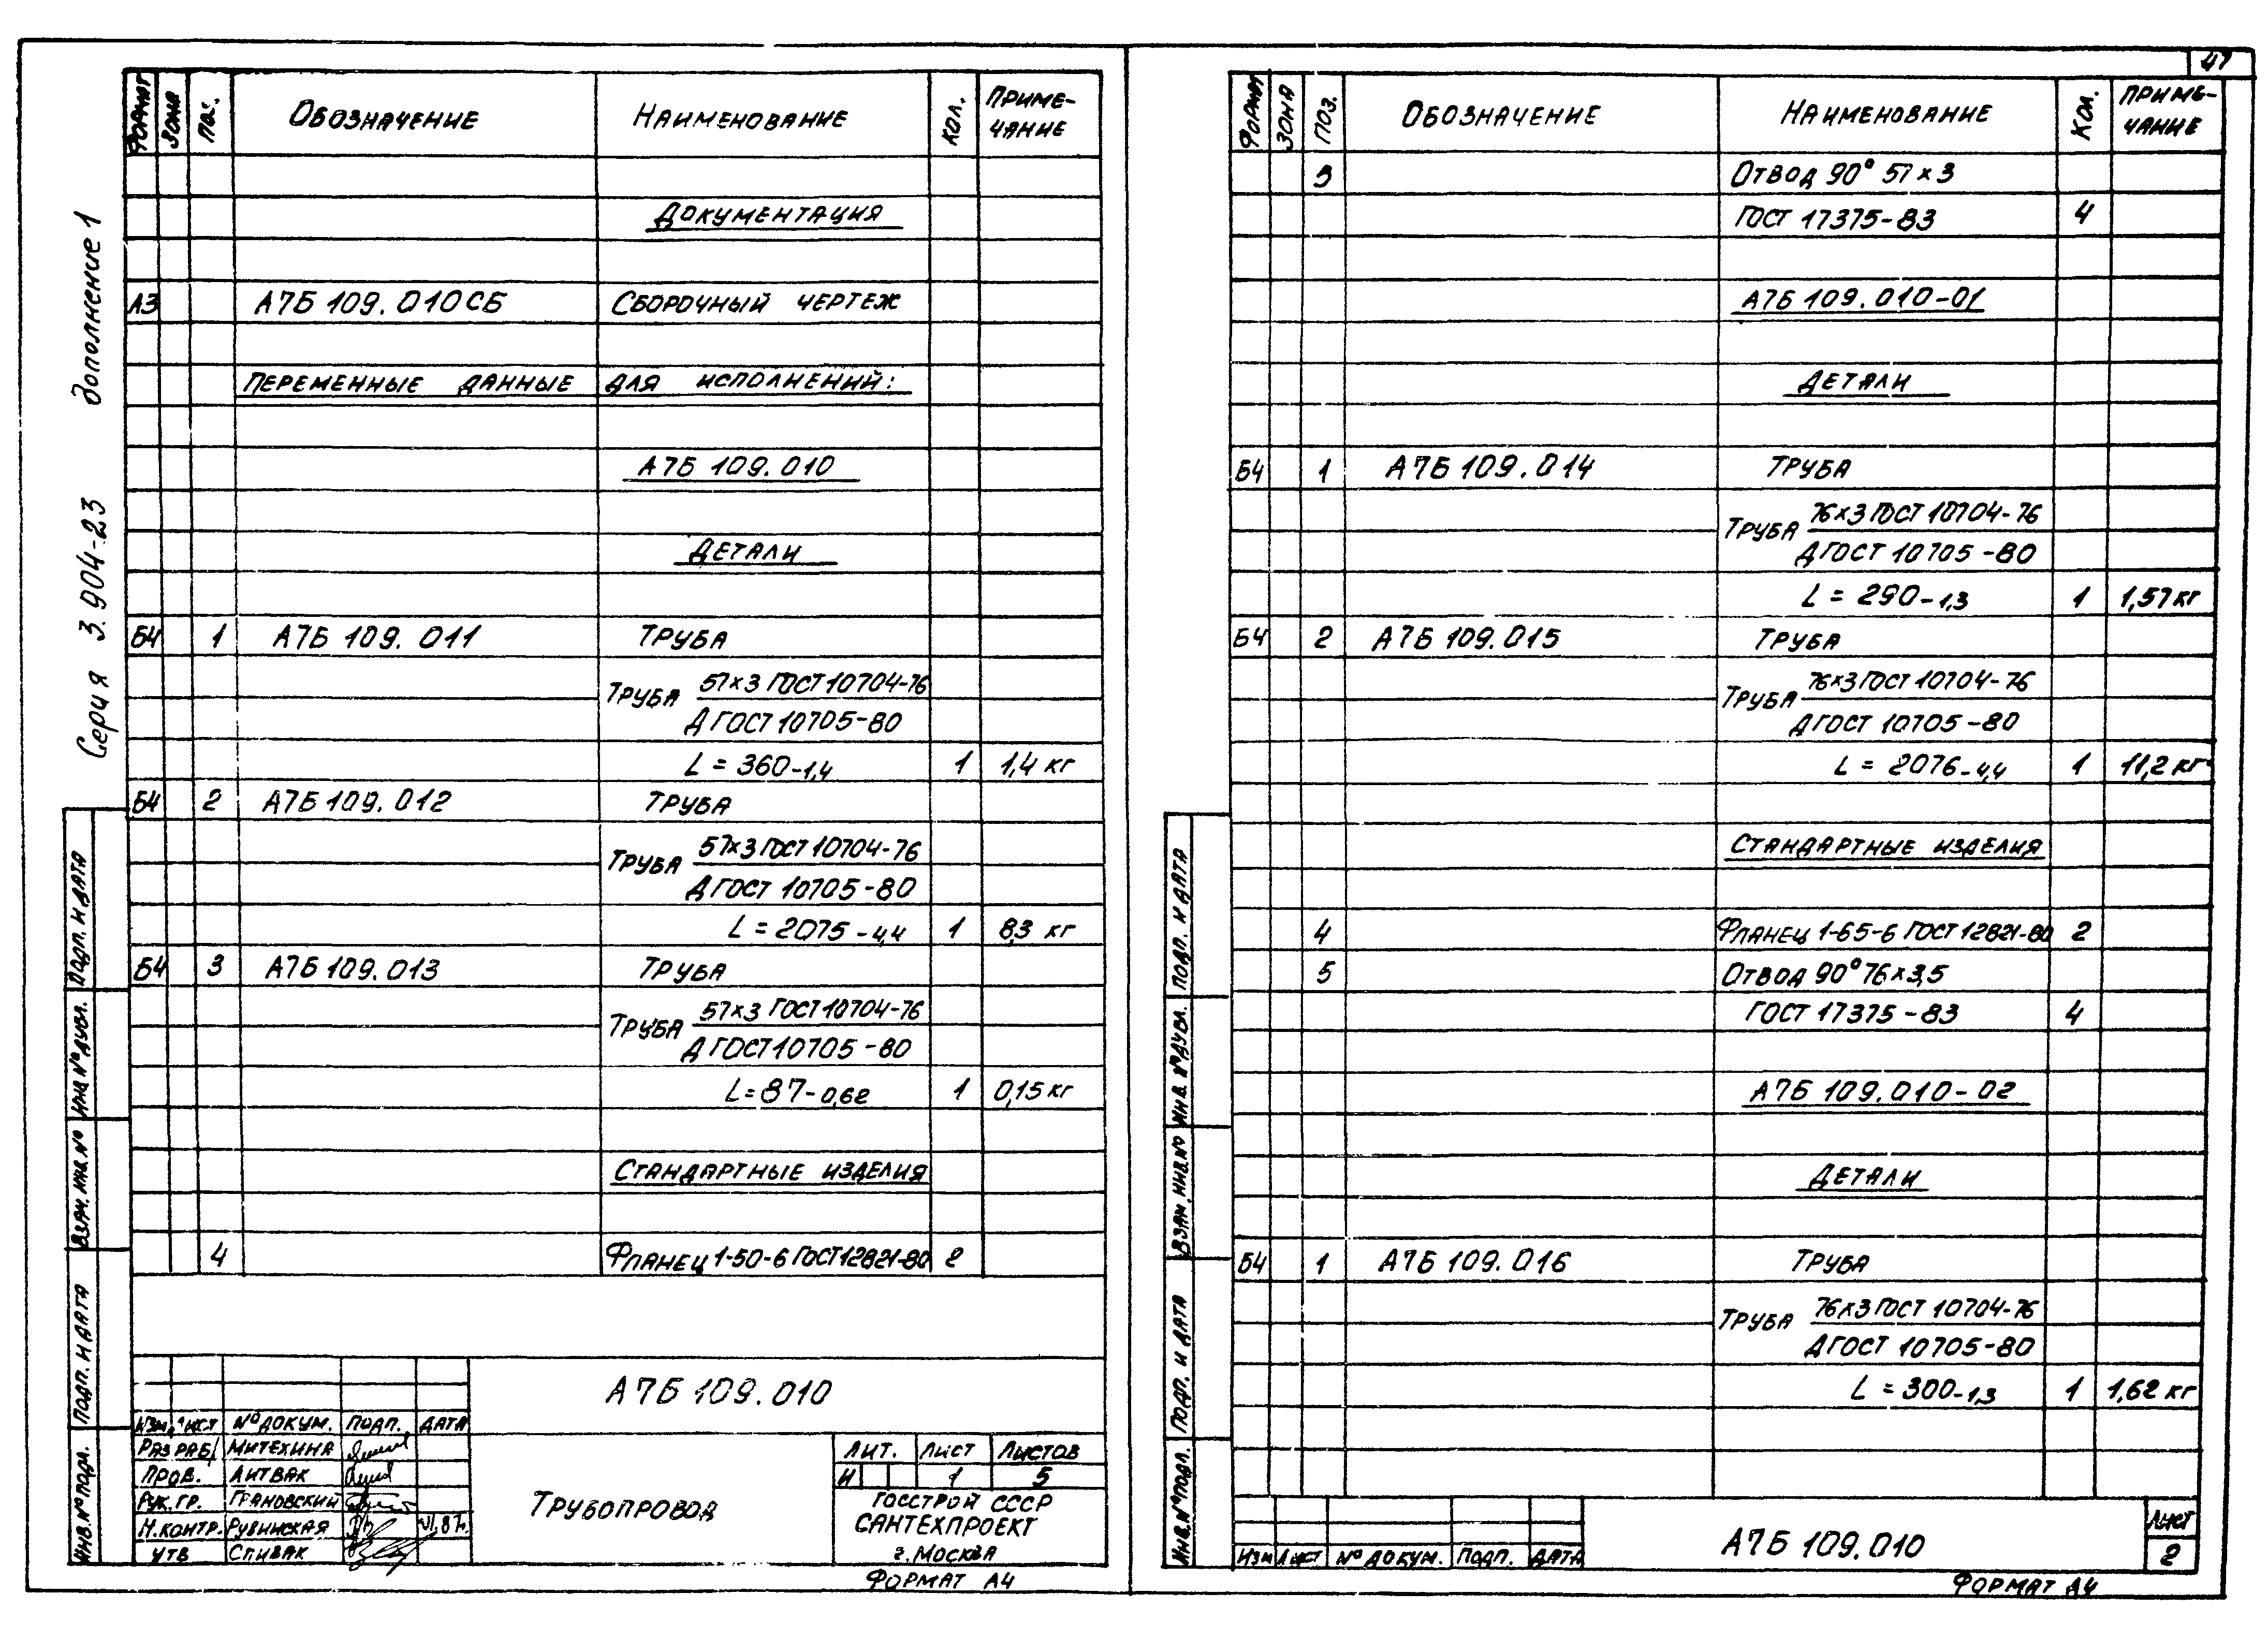 Серия 3.904-23 Дополнение 1
ФОРМАТ ЗОНА ПОЗ. ОБОЗНАЧЕНИЕ НАИМЕНОВАНИЕ КОЛ. ПРИМЕ-
ЧАНИЕ
ДОКУМЕНТАЦИЯ
А3 А7Б 109.010СБ СБОРОЧНЫЙ ЧЕРТЕЖ
ПЕРЕМЕННЫЕ ДАННЫЕ ДЛЯ ИСПОЛНЕНИЙ:
А7Б 109.010
ДЕТАЛИ
Б4 1 А7Б 109.011 ТРУБА
ТРУБА 57×3 ГОСТ 10704-76
Д ГОСТ 10705-80
L = 360-1,4 1 1,4 кг
Б4 2 А7Б 109.012 ТРУБА
ТРУБА 57×3 ГОСТ 10704-76
Д ГОСТ 10705-80
L = 2075-4,4 1 8,3 кг
Б4 3 А7Б 109.013 ТРУБА
ТРУБА 57×3 ГОСТ 10704-76
Д ГОСТ 10705-80
L = 87-0,62 1 0,15 кг
СТАНДАРТНЫЕ ИЗДЕЛИЯ
4 ФЛАНЕЦ 1-50-6 ГОСТ 12821-80 2
ПОДП. И ДАТА
ИНВ. № ДУБЛ.
ВЗАМ. ИНВ. №
ПОДП. И ДАТА
ИНВ. № ПОДЛ.
А7Б 109.010
ИЗМ. ЛИСТ № ДОКУМ. ПОДП. ДАТА
РАЗРАБ. МИТЕХИНА
ПРОВ. ЛИТВАК
РУК. ГР. ГРАНОВСКИЙ
Н.КОНТР. РУБИНСКАЯ VI.87г.
УТВ СПИВАК
ТРУБОПРОВОД
ЛИТ. ЛИСТ ЛИСТОВ
И 1 5
ГОССТРОЙ СССР
САНТЕХПРОЕКТ
г. МОСКВА
ФОРМАТ А4
47
ФОРМАТ ЗОНА ПОЗ. ОБОЗНАЧЕНИЕ НАИМЕНОВАНИЕ КОЛ. ПРИМЕ-
ЧАНИЕ
5 ОТВОД 90° 57×3
ГОСТ 17375-83 4
А7Б 109.010-01
ДЕТАЛИ
Б4 1 А7Б 109.014 ТРУБА
ТРУБА 76×3 ГОСТ 10704-76
Д ГОСТ 10705-80
L = 290-1,3 1 1,57 кг
Б4 2 А7Б 109.015 ТРУБА
ТРУБА 76×3 ГОСТ 10704-76
Д ГОСТ 10705-80
L = 2076-4,4 1 11,2 кг
СТАНДАРТНЫЕ ИЗДЕЛИЯ
4 ФЛАНЕЦ 1-65-6 ГОСТ 12821-80 2
5 ОТВОД 90° 76×3,5
ГОСТ 17375-83 4
А7Б 109.010-02
ДЕТАЛИ
Б4 1 А7Б 109.016 ТРУБА
ТРУБА 76×3 ГОСТ 10704-76
Д ГОСТ 10705-80
L = 300-1,3 1 1,62 кг
ПОДП. И ДАТА
ИНВ. № ДУБЛ.
ВЗАМ. ИНВ. №
ПОДП. И ДАТА
ИНВ. № ПОДЛ.
ИЗМ ЛИСТ № ДОКУМ. ПОДП. ДАТА
А7Б 109.010
ЛИСТ
2
ФОРМАТ А4